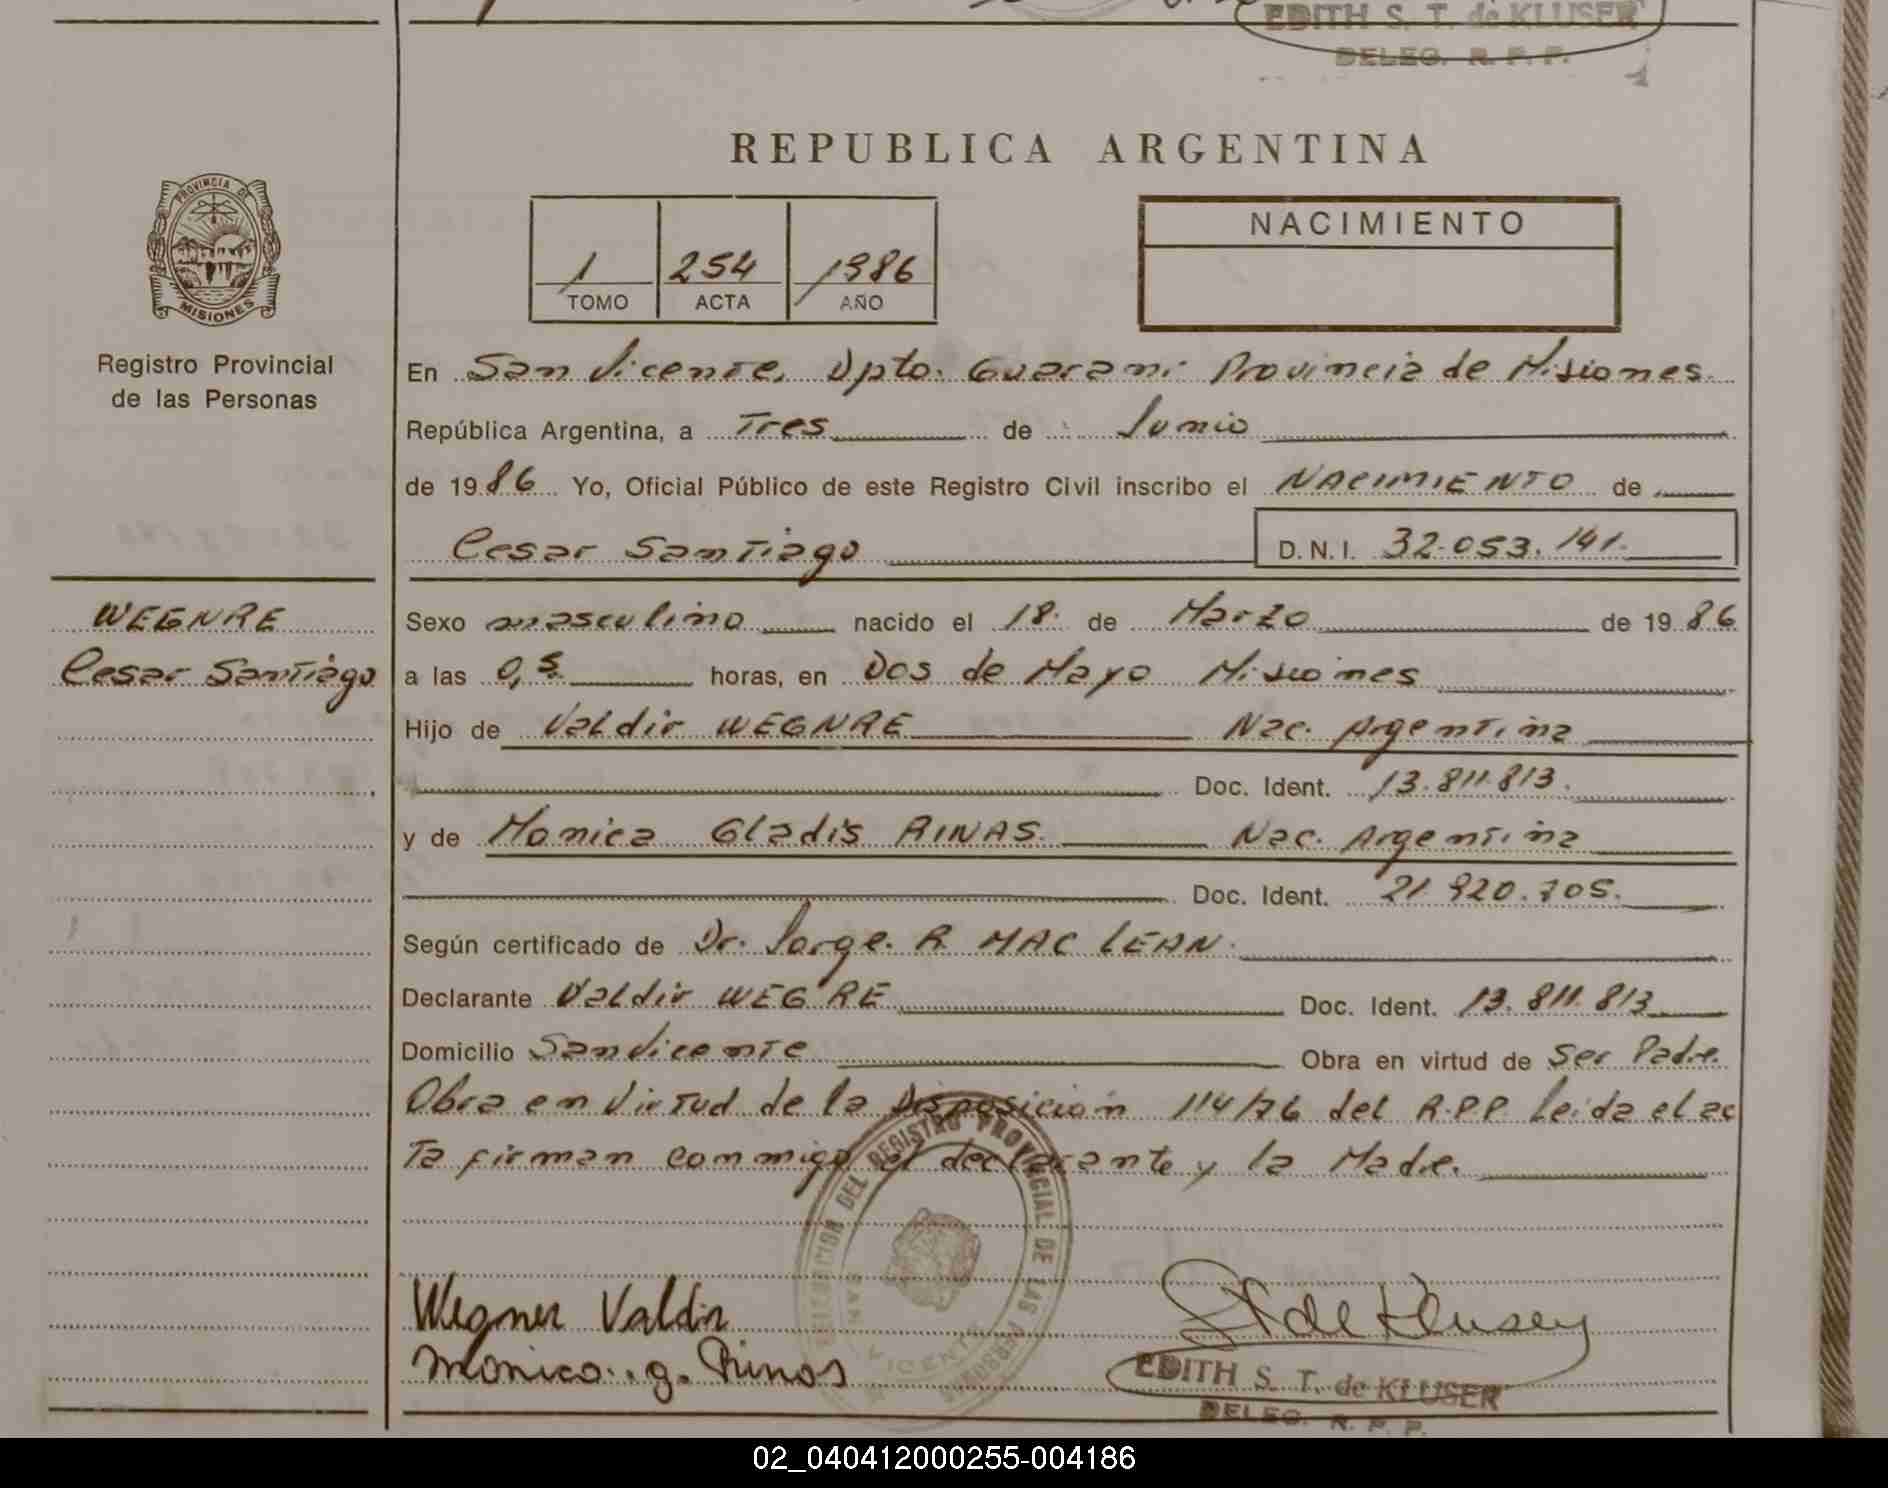 EDITH S. T. de KLUSER
DELEG. R. P. P.
REPUBLICA ARGENTINA
PROVINCIA DE
MISIONES
Registro Provincial
de las Personas
1 254 1986
TOMO ACTA AÑO
NACIMIENTO
En San Vicente, Dpto. Guarani Provincia de Misiones
República Argentina, a Tres de Junio
de 1986 Yo, Oficial Público de este Registro Civil inscribo el NACIMIENTO de
Cesar Santiago D.N.I. 32.053.141.
WEGNRE
Cesar Santiago
Sexo masculino nacido el 18. de Marzo de 1986
a las 0,5. horas, en Dos de Mayo Misiones
Hijo de Valdir WEGNRE Nac. Argentina
Doc. Ident. 13.811.813.
y de Monica Gladis RINAS. Nac. Argentina
Doc. Ident. 21.920.705.
Según certificado de Dr. Jorge. R. MAC LEAN.
Declarante Valdir WEGRE Doc. Ident. 13.811.813
Domicilio San Vicente Obra en virtud de Ser Padre.
Obra en Virtud de la Disposición 114/76 del R.P.P. Leida el ac
Ta firman conmigo el declarante y la Madre.
DELEGACION DEL REGISTRO PROVINCIAL DE LAS PERSONAS
SAN VICENTE
Wegner Valdir
Monica. g. Rinas
ST de Kluser
EDITH S. T. de KLUSER
DELEG. R. P. P.
02_040412000255-004186